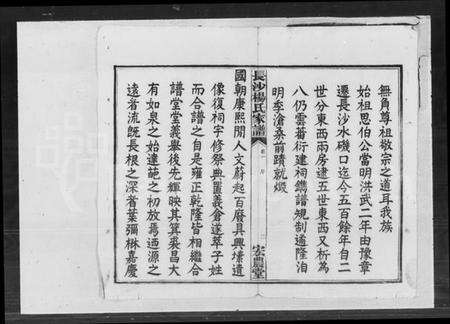 無負尊祖敬宗之道耳我族
始祖思伯公當明洪武二年由豫章
遷長沙水磯口迄今五百餘年自二
世分東西兩房逮五世東西又析為
八仍雲蒼衍建祠鐫譜規制遹隆洎
明季滄桑前蹟就燬
長沙楊氏家譜
卷一 序
宏農堂
國朝康熙閒人文蔚起百廢具興塑遺
像復祠宇修祭典置義倉遂萃子姓
而合譜之自是雍正乾隆皆相繼合
譜堂堂義舉後先輝映其箕裘昌大
有如泉之始達葩之初放焉迺源之
遠者流旣長根之深者葉彌楙嘉慶